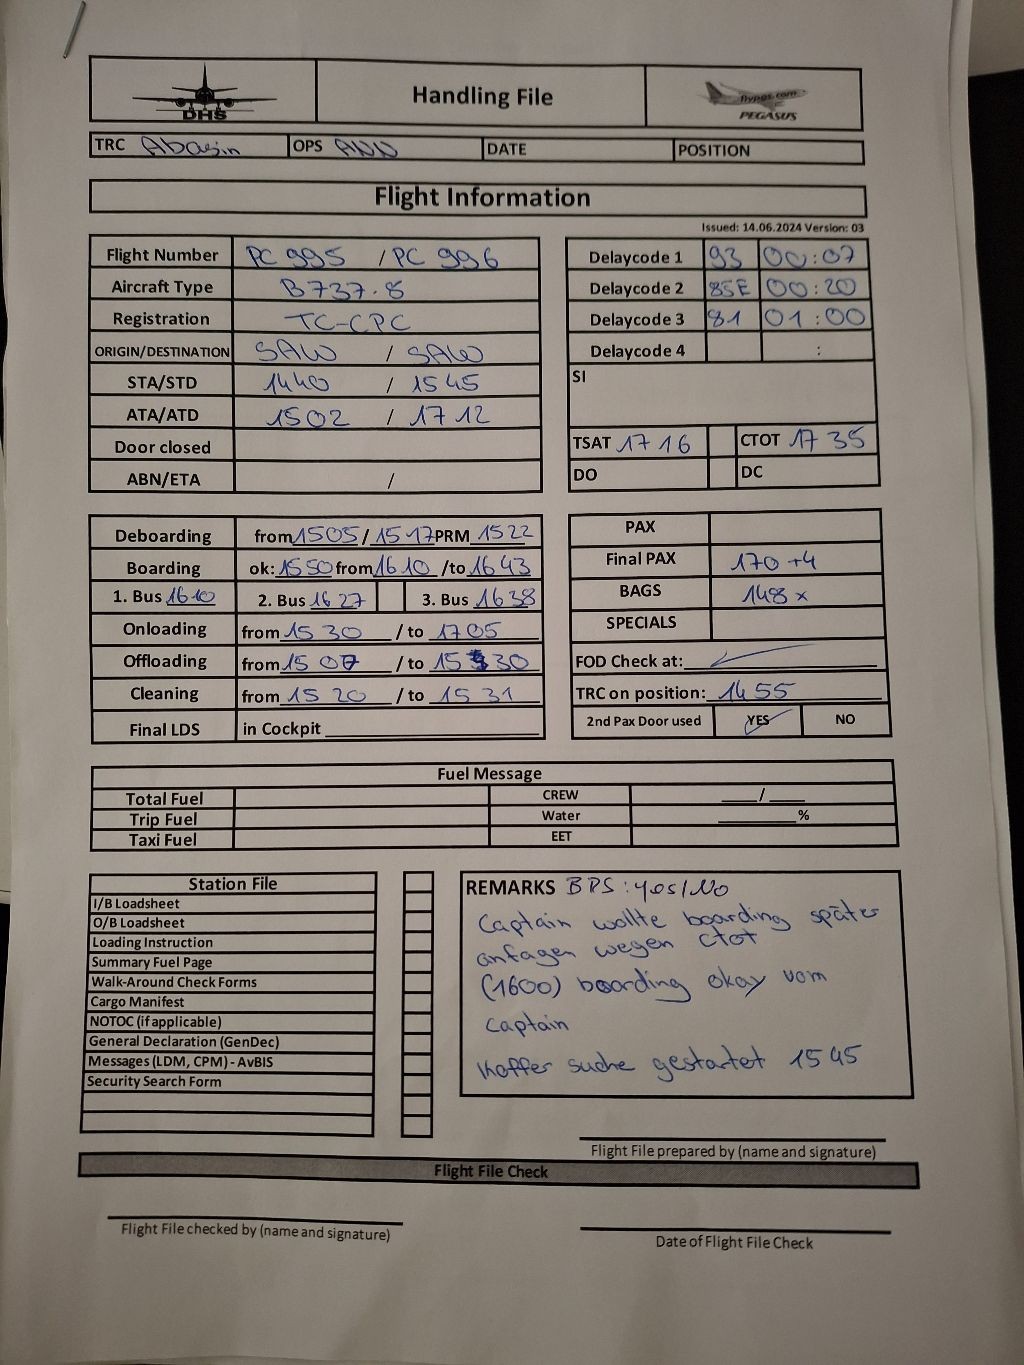 DHS
Handling File
flypgs.com
PEGASUS
TRC Abasin OPS ANN DATE POSITION
Flight Information
Issued: 14.06.2024 Version: 03
Flight Number PC 995 / PC 996
Aircraft Type B737-8
Registration TC-CPC
ORIGIN/DESTINATION SAW / SAW
STA/STD 1440 / 1545
ATA/ATD 1502 / 1712
Door closed
ABN/ETA /
Delaycode 1 93 00:07
Delaycode 2 85E 00:20
Delaycode 3 81 01:00
Delaycode 4 :
SI
TSAT 1716 CTOT 1735
DO DC
Deboarding from 1505 / 1517 PRM 1522
Boarding ok: 1550 from 1610 /to 1643
1. Bus 1610 2. Bus 1627 3. Bus 1638
Onloading from 1530 / to 1705
Offloading from 1507 / to 1530
Cleaning from 1520 / to 1531
Final LDS in Cockpit
PAX
Final PAX 170 +4
BAGS 148 x
SPECIALS
FOD Check at: ✓
TRC on position: 1455
2nd Pax Door used YES NO
Fuel Message
Total Fuel CREW /
Trip Fuel Water %
Taxi Fuel EET
Station File
I/B Loadsheet
O/B Loadsheet
Loading Instruction
Summary Fuel Page
Walk-Around Check Forms
Cargo Manifest
NOTOC (if applicable)
General Declaration (GenDec)
Messages (LDM, CPM) - AvBIS
Security Search Form
REMARKS BPS: yes/No
Captain wollte boarding später
anfagen wegen ctot
(1600) boarding okay vom
Captain
Koffer suche gestartet 1545
Flight File prepared by (name and signature)
Flight File Check
Flight File checked by (name and signature)
Date of Flight File Check